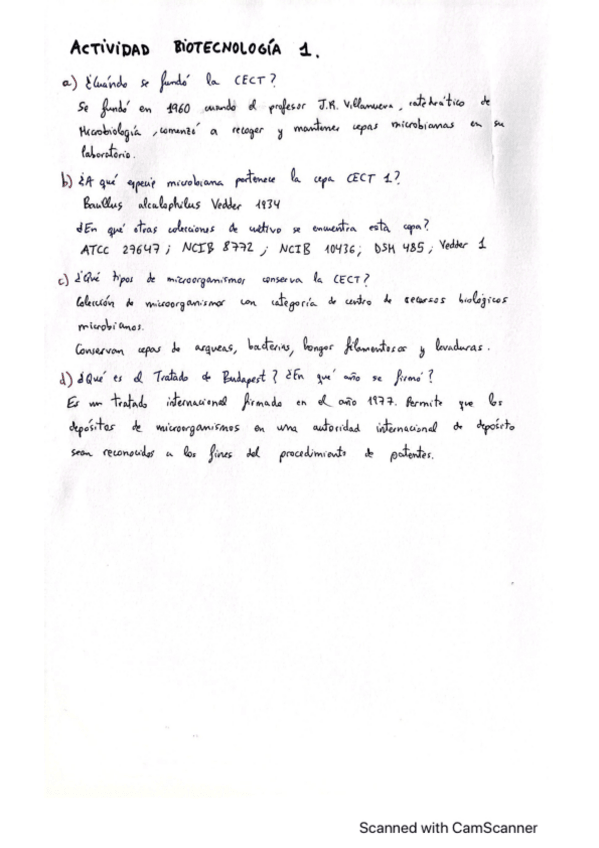 ACTIVIDAD BIOTECNOLOGÍA 1.
a) ¿Cuándo se fundó la CECT?
Se fundó en 1960 cuando el profesor J.R. Villanueva, catedrático de
Microbiología, comenzó a recoger y mantener cepas microbianas en su
laboratorio.
b) ¿A qué especie microbiana pertenece la cepa CECT 1?
Bacillus alcalophilus Vedder 1934
¿En qué otras colecciones de cultivo se encuentra esta cepa?
ATCC 27647; NCIB 8772; NCIB 10436; DSM 485; Vedder 1
c) ¿Qué tipos de microorganismos conserva la CECT?
Colección de microorganismos con categoría de centro de recursos biológicos
microbianos.
Conservan cepas de arqueas, bacterias, hongos filamentosos y levaduras.
d) ¿Qué es el Tratado de Budapest? ¿En qué año se firmó?
Es un tratado internacional firmado en el año 1977. Permite que los
depósitos de microorganismos en una autoridad internacional de depósito
sean reconocidos a los fines del procedimiento de patentes.
Scanned with CamScanner